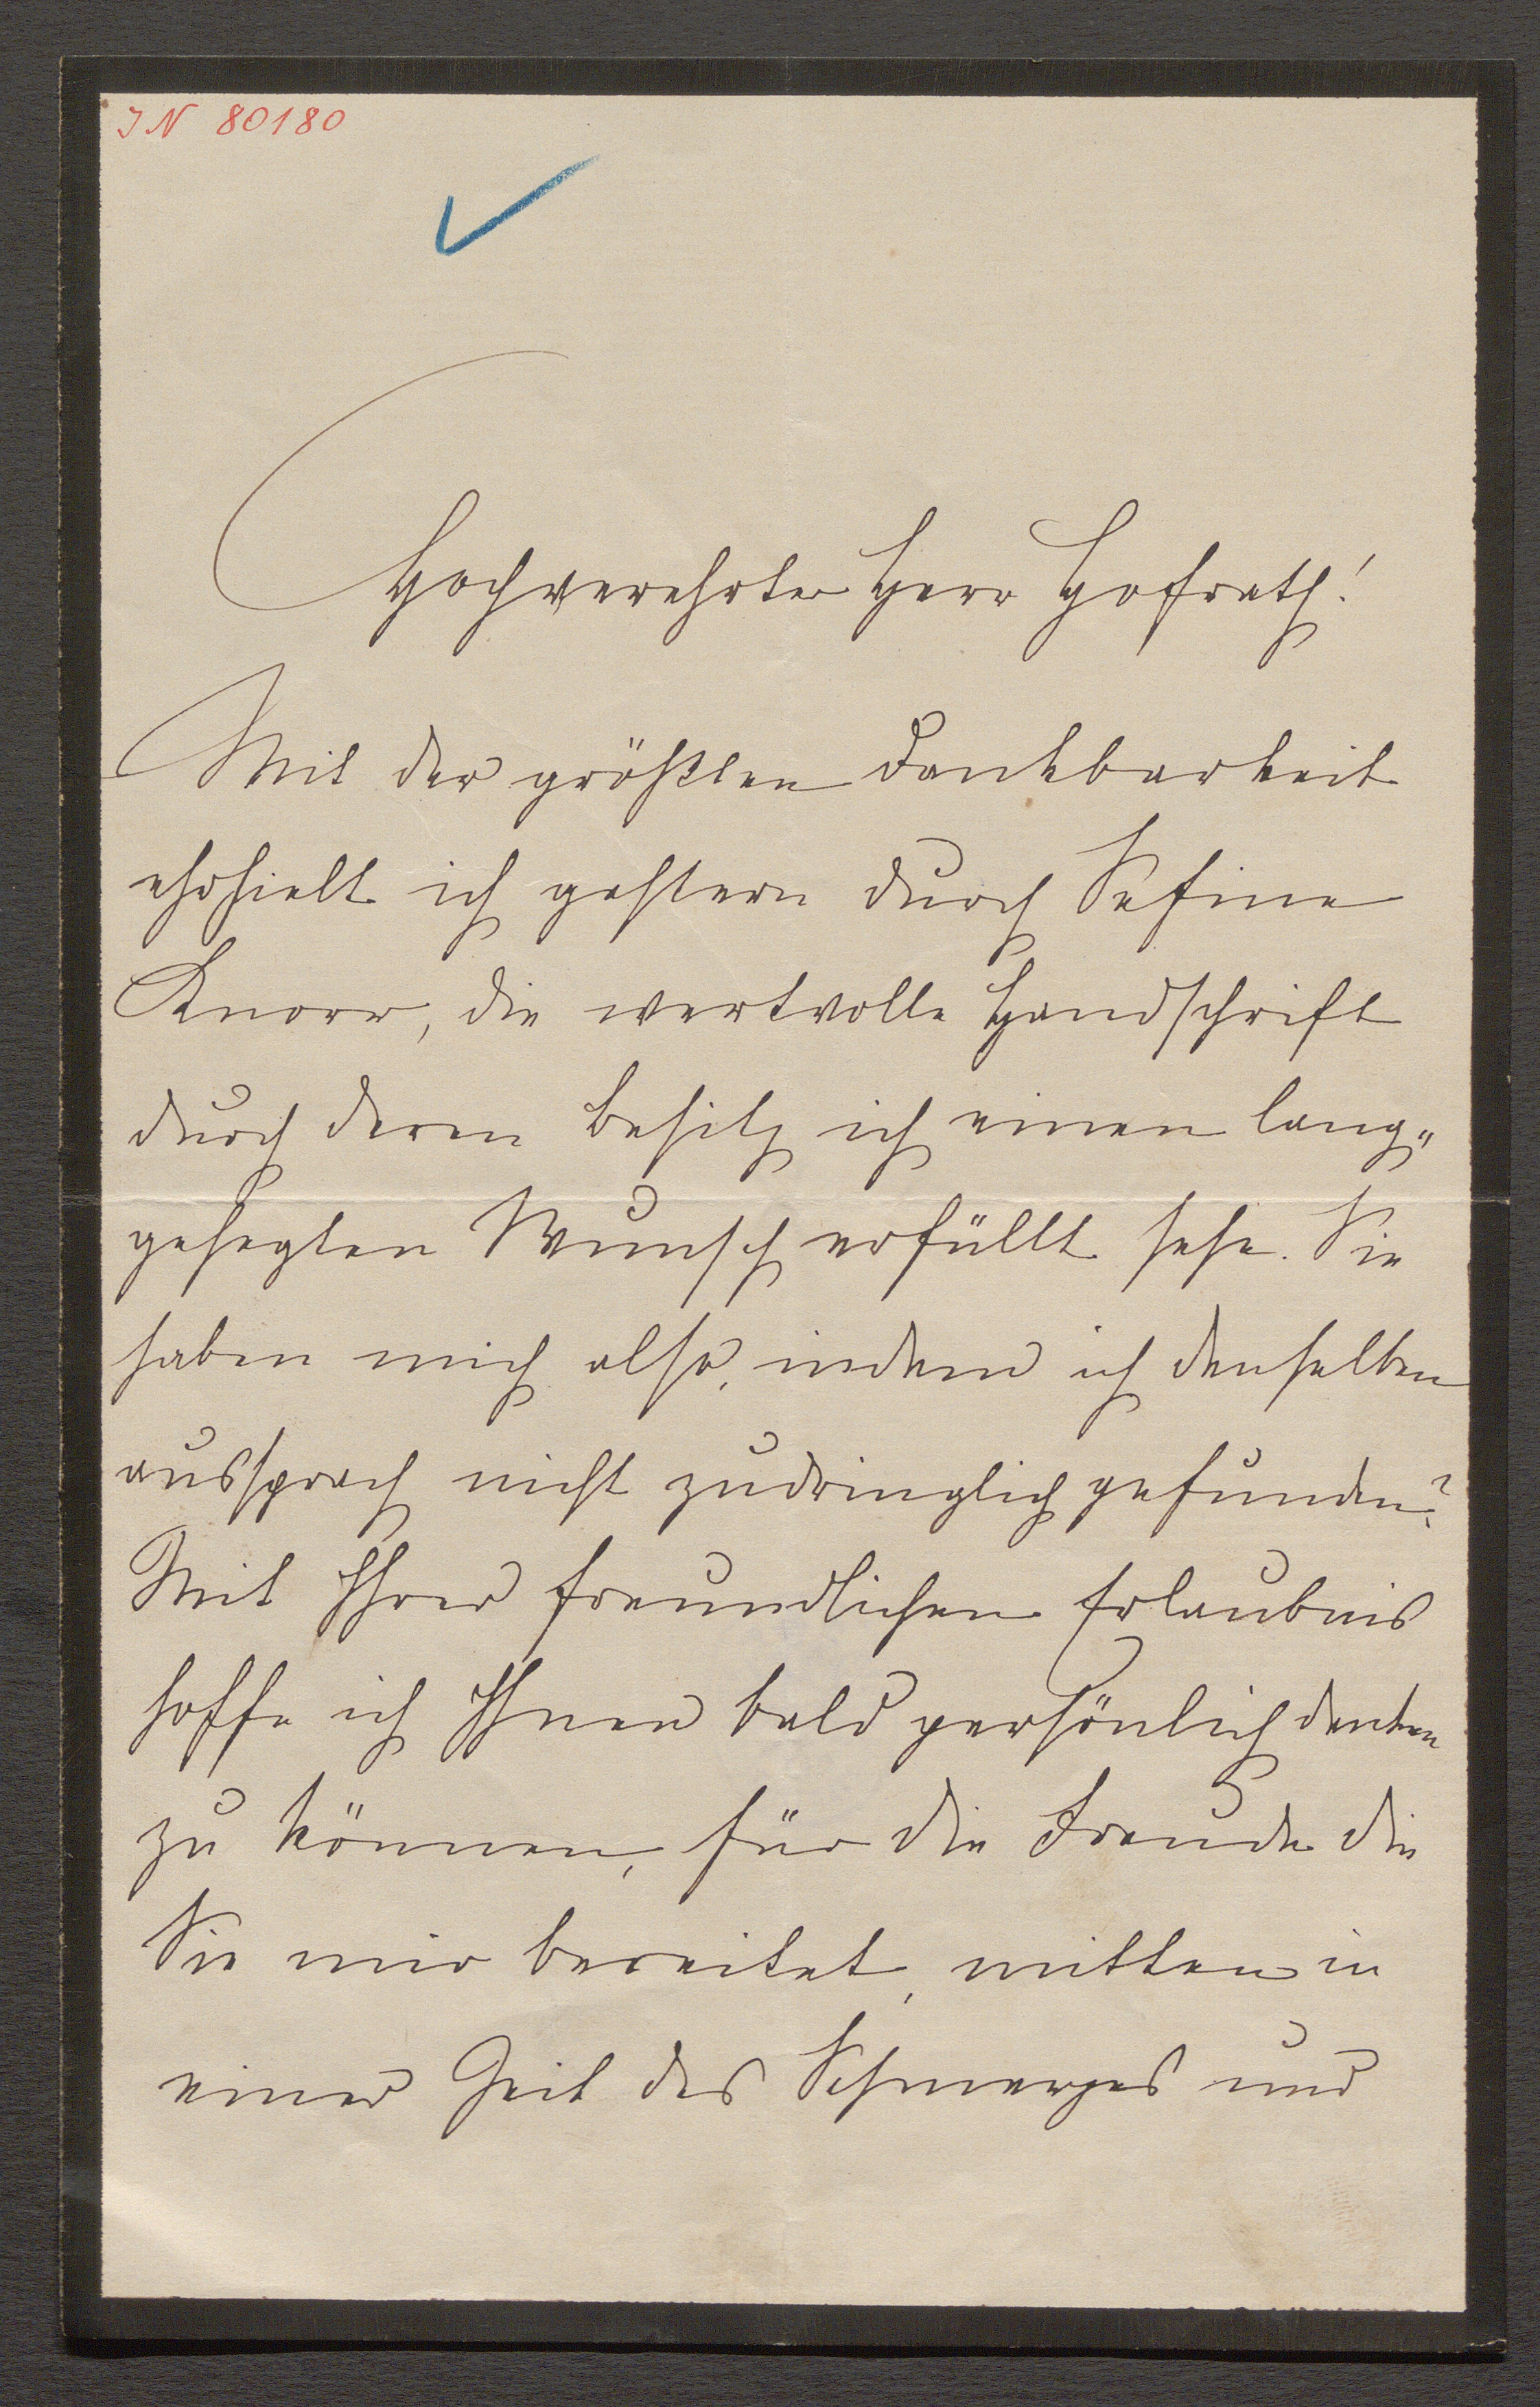 IN 80180
Hochverehrter Herr Hofrath!
Mit der größten Dankbarkeit
erhielt ich gestern durch Sefine
Knorr, die wertvolle Handschrift
durch deren Besitz ich einen lang„
gehegten Wunsch erfüllt sehe. Sie
haben mich also, indem ich denselben
aussprach nicht zudringlich gefunden?
Mit Ihrer freundlichen Erlaubnis
hoffe ich Ihnen bald persönlich danken
zu können, für die Freude die
Sie mir bereitet, mitten in
einer Zeit des Schmerzes und